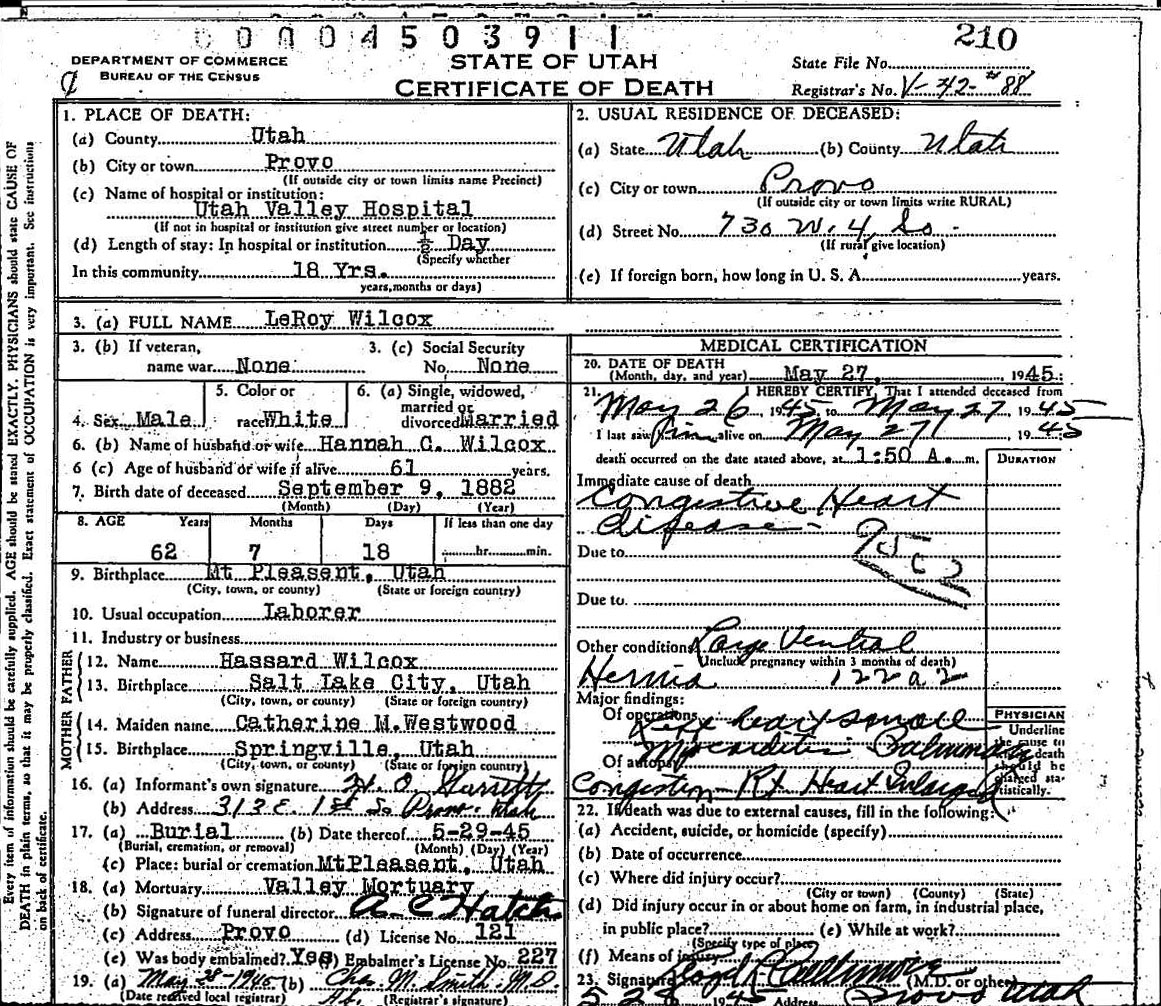 0 0 0 0 4 5 0 3 9 1 1
210
DEPARTMENT OF COMMERCE
BUREAU OF THE CENSUS
STATE OF UTAH
CERTIFICATE OF DEATH
State File No.
Registrar's No. V-42-#88
Every item of information should be carefully supplied. AGE should be stated EXACTLY. PHYSICIANS should state CAUSE OF
DEATH in plain terms, so that it may be properly classified. Exact statement of OCCUPATION is very important. See instructions
on back of certificate.
1. PLACE OF DEATH:
(a) County Utah
(b) City or town Provo
(If outside city or town limits name Precinct)
(c) Name of hospital or institution:
Utah Valley Hospital
(If not in hospital or institution give street number or location)
(d) Length of stay: In hospital or institution ½ Day
(Specify whether
In this community 18 Yrs.
years, months or days)
2. USUAL RESIDENCE OF DECEASED:
(a) State Utah (b) County Utah
(c) City or town Provo
(If outside city or town limits write RURAL)
(d) Street No. 730 W. 4 So.
(If rural give location)
(e) If foreign born, how long in U. S. A. years.
3. (a) FULL NAME LeRoy Wilcox
3. (b) If veteran, 3. (c) Social Security
name war None No. None
5. Color or 6. (a) Single, widowed,
married or
4. Sex Male race White divorced Married
6. (b) Name of husband or wife Hannah C. Wilcox
6 (c) Age of husband or wife if alive 61 years.
7. Birth date of deceased September 9, 1882
(Month) (Day) (Year)
8. AGE Years Months Days If less than one day
62 7 18 hr. min.
9. Birthplace Mt Pleasent, Utah
(City, town, or county) (State or foreign country)
10. Usual occupation Laborer
11. Industry or business
FATHER
12. Name Hassard Wilcox
13. Birthplace Salt Lake City, Utah
(City, town, or county) (State or foreign country)
MOTHER
14. Maiden name Catherine M.Westwood
15. Birthplace Springville, Utah
(City, town, or county) (State or foreign country)
16. (a) Informant's own signature
(b) Address 313 E 1st So Provo Utah
17. (a) Burial (b) Date thereof 5-29-45
(Burial, cremation, or removal) (Month) (Day) (Year)
(c) Place: burial or cremation MtPleasent, Utah
18. (a) Mortuary Valley Mortuary
(b) Signature of funeral director A C Hatch
(c) Address Provo (d) License No. 121
(e) Was body embalmed? Yes (f) Embalmer's License No. 227
19. (a) May 28-1945 (b) Chas. M. Smith M.D
(Date received local registrar) (Registrar's signature)
MEDICAL CERTIFICATION
20. DATE OF DEATH
(Month, day, and year) May 27, 1945
21. I HEREBY CERTIFY, That I attended deceased from
May 26, 1945 to May 27 1945
I last saw him alive on May 27 1945
death occurred on the date stated above, at 1:50 A. m. DURATION
Immediate cause of death
Congestive Heart
disease
Due to
Due to
Other conditions Large Ventral
(Include pregnancy within 3 months of death)
Hernia 122a2
Major findings:
Of operations Left heart small
Myocarditis Pulmonary
Of autopsy
Congestion Rt Heart Enlarged
PHYSICIAN
Underline
the cause to
death
should be
charged sta-
tistically.
22. If death was due to external causes, fill in the following:
(a) Accident, suicide, or homicide (specify)
(b) Date of occurrence
(c) Where did injury occur?
(City or town) (County) (State)
(d) Did injury occur in or about home on farm, in industrial place,
in public place? (e) While at work?
(Specify type of place)
(f) Means of injury
23. Signature (M.D. or other)
5 28 1945 Address Provo Utah